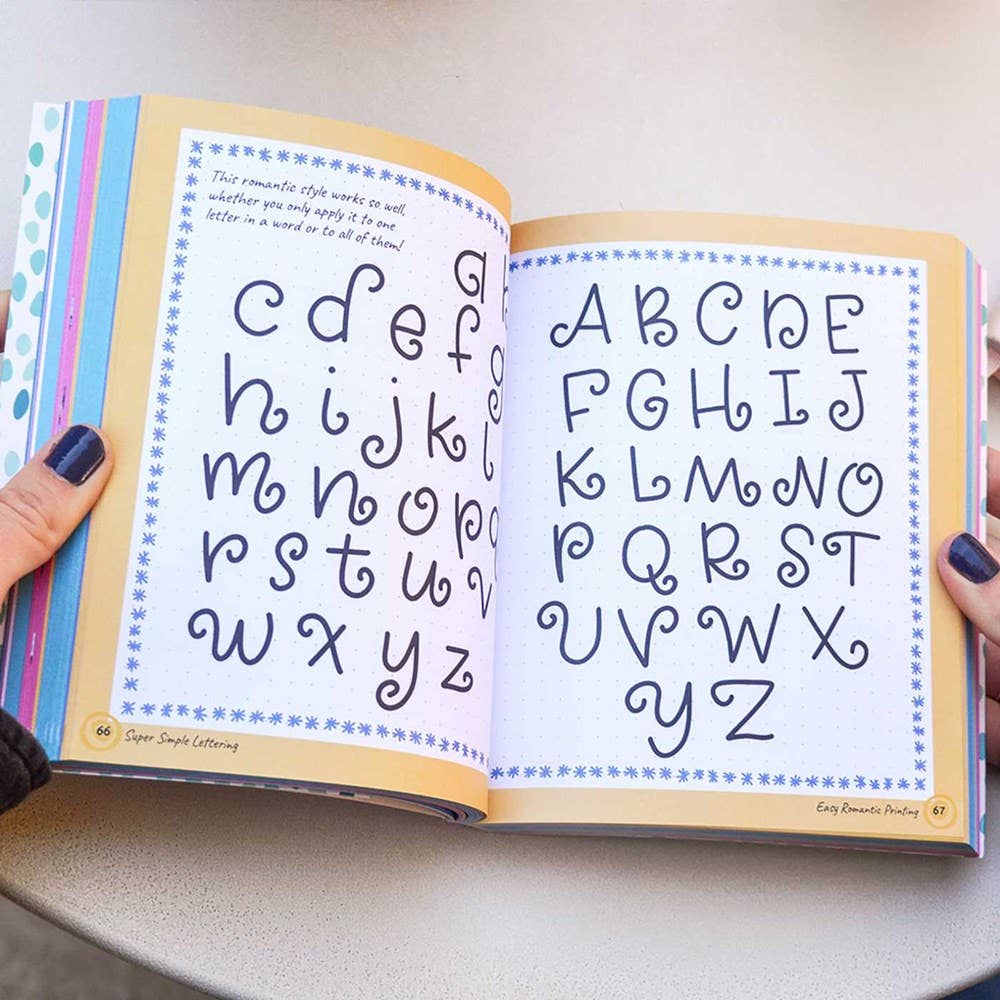 This romantic style works so well,
whether you only apply it to one
letter in a word or to all of them!
a
c d e f
h i j k l
m n o p
r s t u v
w x y z
66 Super Simple Lettering
A B C D E
F G H I J
K L M N O
P Q R S T
U V W X
Y Z
Easy Romantic Printing 67